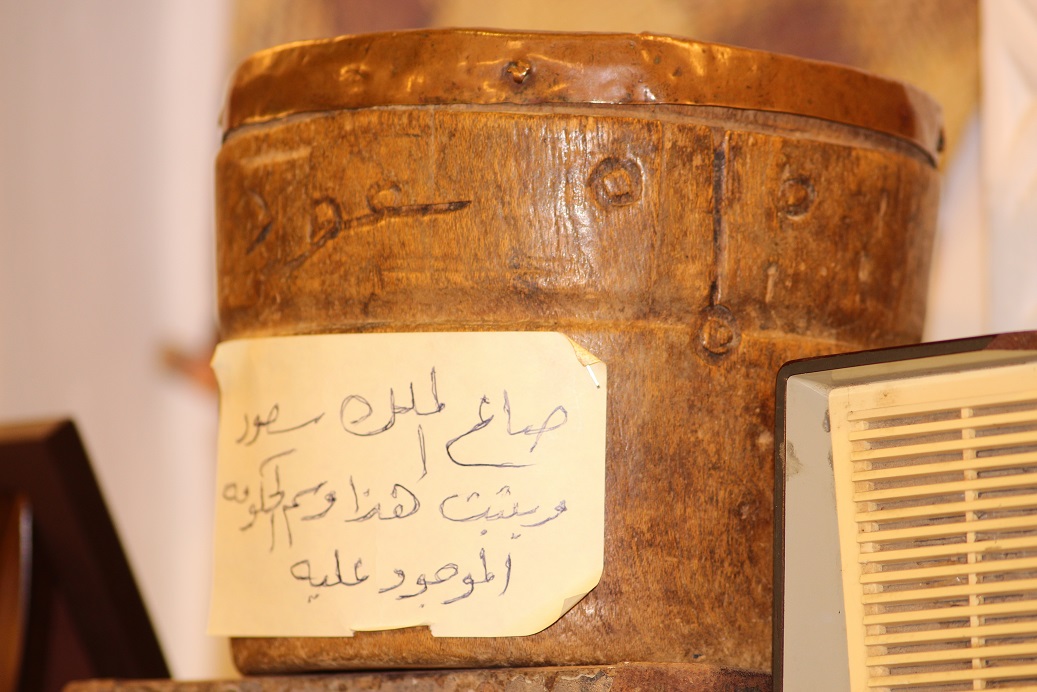 صاع الملك سعود
ويثبت هذا وسم الحكومه
الموجود عليه